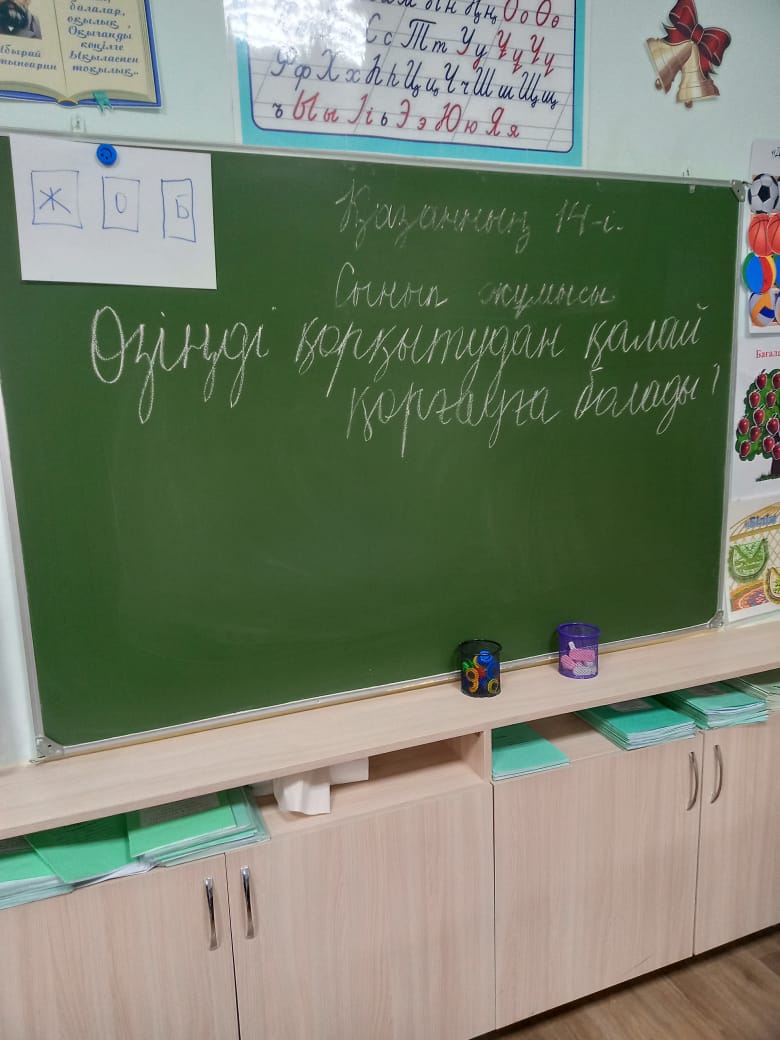 балалар,
оқылық,
Оқығанды
көңілге
Ықыласпен
тоқылық..
Ыбырай
Алтынсарин
Сс Тт Уу Ұұ Үү
Фф Хх Һһ Цц Чч Шш Щщ
ъ Ыы Іі ь Ээ Юю Яя
Ж О Б
Қазанның 14-і.
Сынып жұмысы
Өзіңді қорқытудан қалай
қорғауға болады?
Баға